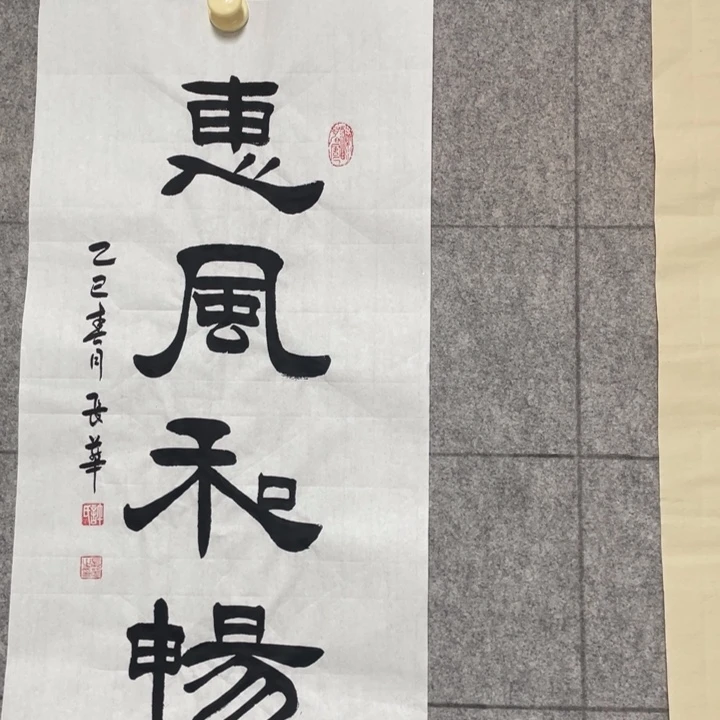 惠風和暢
乙巳春月長華